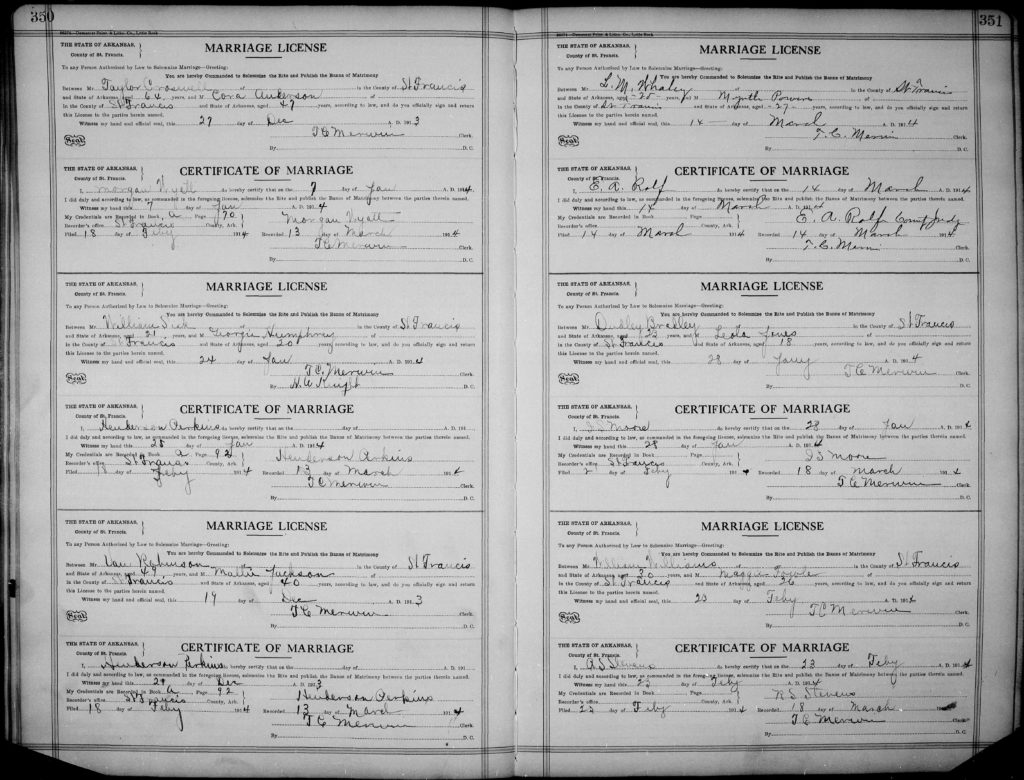 350
THE STATE OF ARKANSAS,
County of St. Francis.
MARRIAGE LICENSE
To any Person Authorized by Law to Solemnize Marriage—Greeting:
You are hereby Commanded to Solemnize the Rite and Publish the Banns of Matrimony
Between Mr. Taylor of in the County of St Francis
and State of Arkansas, aged 64 years, and M Cora of
in the County of St Francis and State of Arkansas, aged 47 years, according to law, and do you officially sign and return
this License to the parties herein named.
Witness my hand and official seal, this 27 day of Dec A. D. 1913
Seal T C Merwin Clerk.
By D. C.
THE STATE OF ARKANSAS,
County of St. Francis.
CERTIFICATE OF MARRIAGE
I, Morgan do hereby certify that on the 7 day of Jan A. D. 1914.
I did duly and according to law, as commanded in the foregoing license, solemnize the Rite and publish the Banns of Matrimony between the parties therein named.
Witness my hand this 7 day of Jan A. D. 1914
My Credentials are Recorded in Book A Page 90 Morgan
Recorder's office St Francis County, Ark.
Filed 18 day of Feby 1914 Recorded 13 day of March 1914
T C Merwin Clerk.
By D. C.
THE STATE OF ARKANSAS,
County of St. Francis.
MARRIAGE LICENSE
To any Person Authorized by Law to Solemnize Marriage—Greeting:
You are hereby Commanded to Solemnize the Rite and Publish the Banns of Matrimony
Between Mr. William Sisk of in the County of St Francis
and State of Arkansas, aged 21 years, and M Georgia Humphrey of
in the County of St Francis and State of Arkansas, aged 20 years, according to law, and do you officially sign and return
this License to the parties herein named.
Witness my hand and official seal, this 24 day of Jan A. D. 1914
Seal T C. Merwin Clerk.
By Knight D. C.
THE STATE OF ARKANSAS,
County of St. Francis.
CERTIFICATE OF MARRIAGE
I, Henderson Perkins do hereby certify that on the day of A. D. 191
I did duly and according to law, as commanded in the foregoing license, solemnize the Rite and publish the Banns of Matrimony between the parties therein named.
Witness my hand this 28 day of Jan A. D. 1914
My Credentials are Recorded in Book A Page 92 Henderson Perkins
Recorder's office St Francis County, Ark.
Filed 18 day of Feby 1914 Recorded 13 day of March 1914
T C Merwin Clerk.
By D. C.
THE STATE OF ARKANSAS,
County of St. Francis.
MARRIAGE LICENSE
To any Person Authorized by Law to Solemnize Marriage—Greeting:
You are hereby Commanded to Solemnize the Rite and Publish the Banns of Matrimony
Between Mr. Robinson of in the County of St Francis
and State of Arkansas, aged 47 years, and M Mattie Jackson of
in the County of St Francis and State of Arkansas, aged 40 years, according to law, and do you officially sign and return
this License to the parties herein named.
Witness my hand and official seal, this 19 day of Dec A. D. 1913
Seal T. C Merwin Clerk.
By D. C.
THE STATE OF ARKANSAS,
County of St. Francis.
CERTIFICATE OF MARRIAGE
I, Henderson Perkins do hereby certify that on the day of A. D. 191
I did duly and according to law, as commanded in the foregoing license, solemnize the Rite and publish the Banns of Matrimony between the parties therein named.
Witness my hand this 29 day of Dec A. D. 1913
My Credentials are Recorded in Book A Page 92 Henderson Perkins
Recorder's office St Francis County, Ark.
Filed 18 day of Feby 1914 Recorded 13 day of March 1914
T C Merwin Clerk.
By D. C.
351
THE STATE OF ARKANSAS,
County of St. Francis.
MARRIAGE LICENSE
To any Person Authorized by Law to Solemnize Marriage—Greeting:
You are hereby Commanded to Solemnize the Rite and Publish the Banns of Matrimony
Between Mr. L. M. Whaley of in the County of St Francis
and State of Arkansas, aged years, and M Myrtle Powers of
in the County of St Francis and State of Arkansas, aged 27 years, according to law, and do you officially sign and return
this License to the parties herein named.
Witness my hand and official seal, this 14 day of March A. D. 1914
Seal T. C. Merwin Clerk.
By D. C.
THE STATE OF ARKANSAS,
County of St. Francis.
CERTIFICATE OF MARRIAGE
I, E. A. Rolf do hereby certify that on the 14 day of March A. D. 1914
I did duly and according to law, as commanded in the foregoing license, solemnize the Rite and publish the Banns of Matrimony between the parties therein named.
Witness my hand this 14 day of March A. D. 1914
My Credentials are Recorded in Book Page E. A. Rolf County Judg
Recorder's office County, Ark.
Filed 14 day of March 1914 Recorded 14 day of March 1914
T. C. Merwin Clerk.
By D. C.
THE STATE OF ARKANSAS,
County of St. Francis.
MARRIAGE LICENSE
To any Person Authorized by Law to Solemnize Marriage—Greeting:
You are hereby Commanded to Solemnize the Rite and Publish the Banns of Matrimony
Between Mr. Dudley Bradley of in the County of St Francis
and State of Arkansas, aged 22 years, and M Leola Jones of
in the County of St Francis and State of Arkansas, aged 18 years, according to law, and do you officially sign and return
this License to the parties herein named.
Witness my hand and official seal, this 28 day of Jany A. D. 1914
Seal T C Merwin Clerk.
By D. C.
THE STATE OF ARKANSAS,
County of St. Francis.
CERTIFICATE OF MARRIAGE
I, Moore do hereby certify that on the 28 day of Jan A. D. 1914
I did duly and according to law, as commanded in the foregoing license, solemnize the Rite and publish the Banns of Matrimony between the parties therein named.
Witness my hand this 28 day of Jan A. D. 1914
My Credentials are Recorded in Book Page Moore
Recorder's office St Francis County, Ark.
Filed 2 day of Feby 191 Recorded 18 day of March 1914
T C Merwin Clerk.
By D. C.
THE STATE OF ARKANSAS,
County of St. Francis.
MARRIAGE LICENSE
To any Person Authorized by Law to Solemnize Marriage—Greeting:
You are hereby Commanded to Solemnize the Rite and Publish the Banns of Matrimony
Between Mr. William Williams of in the County of St Francis
and State of Arkansas, aged 30 years, and M Maggie of
in the County of St Francis and State of Arkansas, aged 26 years, according to law, and do you officially sign and return
this License to the parties herein named.
Witness my hand and official seal, this 23 day of Feby A. D. 1914
Seal T C Merwin Clerk.
By D. C.
THE STATE OF ARKANSAS,
County of St. Francis.
CERTIFICATE OF MARRIAGE
I, Stevens do hereby certify that on the 23 day of Feby A. D. 1914
I did duly and according to law, as commanded in the foregoing license, solemnize the Rite and publish the Banns of Matrimony between the parties therein named.
Witness my hand this 23 day of Feby A. D. 1914
My Credentials are Recorded in Book Page Stevens
Recorder's office County, Ark.
Filed 23 day of Feby 1914 Recorded 18 day of March 1914
T C Merwin Clerk.
By D. C.